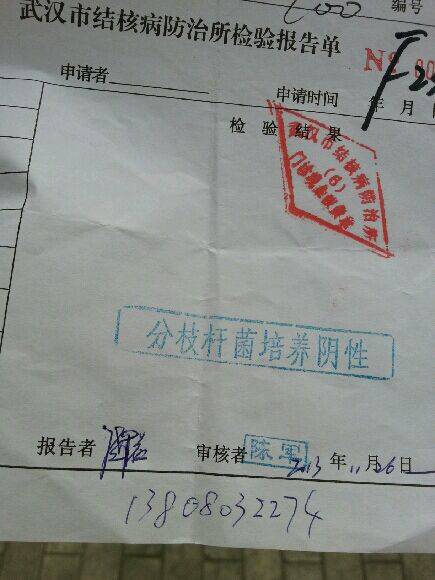 编号
武汉市结核病防治所检验报告单
N
申请者 申请时间 年 月
检验结果
武汉市结核病防治所
(6)
分枝杆菌培养阴性
报告者 审核者 陈军 2013 年 11 月 26 日
13808032274